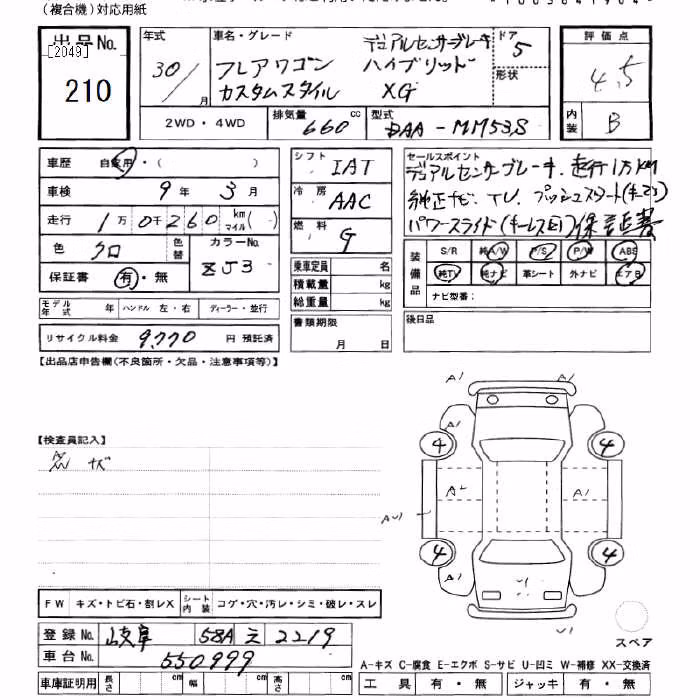 (複合機)対応用紙
出品No.
[2049]
210
年式
30/月
車名・グレード
フレアワゴン
カスタムスタイル
デュアルセンサーブレーキ
ハイブリッド
XG
ドア
5
形状
評価点
4.5
内装
B
2WD・4WD
排気量
660 cc
型式
DAA-MM53S
車歴
自家用・( )
車検
9年 3月
走行
1万0千260 km マイル( )
色
クロ
色替
カラーNo.
ZJ3
保証書
有・無
シフト
IAT
冷房
AAC
燃料
G
乗車定員 名
積載量 kg
総重量 kg
書類期限
月 日
セールスポイント
デュアルセンサーブレーキ. 走行1万KM
純正ナビ. TV. プッシュスタート(キー2ヶ)
パワースライド(キーレス2ヶ)保証書
装備品
S/R 純A/W P/S P/W ABS
純TV 純ナビ 革シート 外ナビ エアB
ナビ型番:
モデル年式 年 ハンドル 左・右 ディーラー・並行
リサイクル料金 9,770 円 預託済
後日品
【出品店申告欄(不良箇所・欠品・注意事項等)】
【検査員記入】
A1 A1
A1
4 4
A1
A1
4 4
A1
U1
U1
スペア
FW キズ・トビ石・割レX シート内装 コゲ・穴・汚レ・シミ・破レ・スレ
登録No. 岐阜 58A え 2219
車台No. 550999
車庫証明用 長さ cm 幅 cm 高さ cm
A-キズ C-腐食 E-エクボ S-サビ U-凹ミ W-補修 XX-交換済
工具 有・無 ジャッキ 有・無